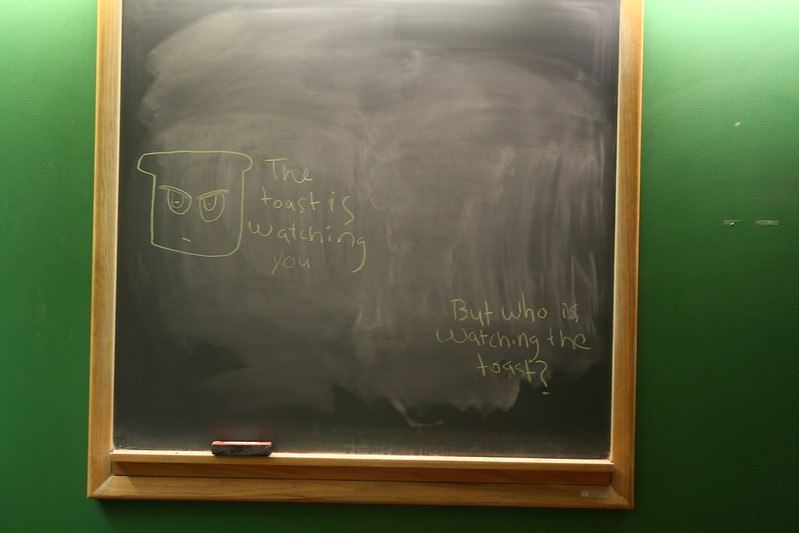 The
toast is
watching
you
But who is
watching the
toast?